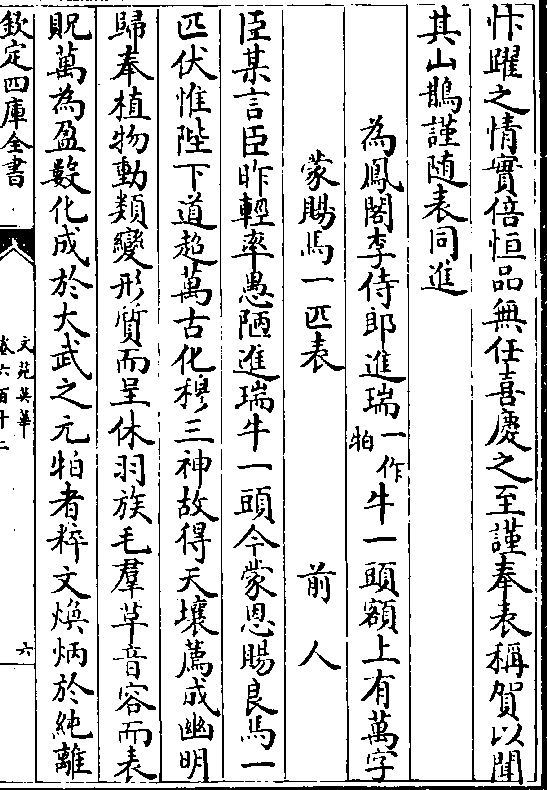 忭躍之情實倍恒品無任喜慶之至謹奉表稱賀以聞
其山鵲謹随表同進
為鳳閣李侍郎進瑞一作牰牛一頭額上有萬字
蒙賜馬一匹表 前人
臣某言臣昨輕率愚陋進瑞牛一頭今蒙恩賜良馬一
匹伏惟陛下道超萬古化穆三神故得天壤薦成幽明
歸奉植物動類變形質而呈休羽族毛羣草音容而表
貺萬為盈數化成於大武之元牰者粹文煥炳於純離
欽定四庫全書
文苑英華
卷六百十二
六